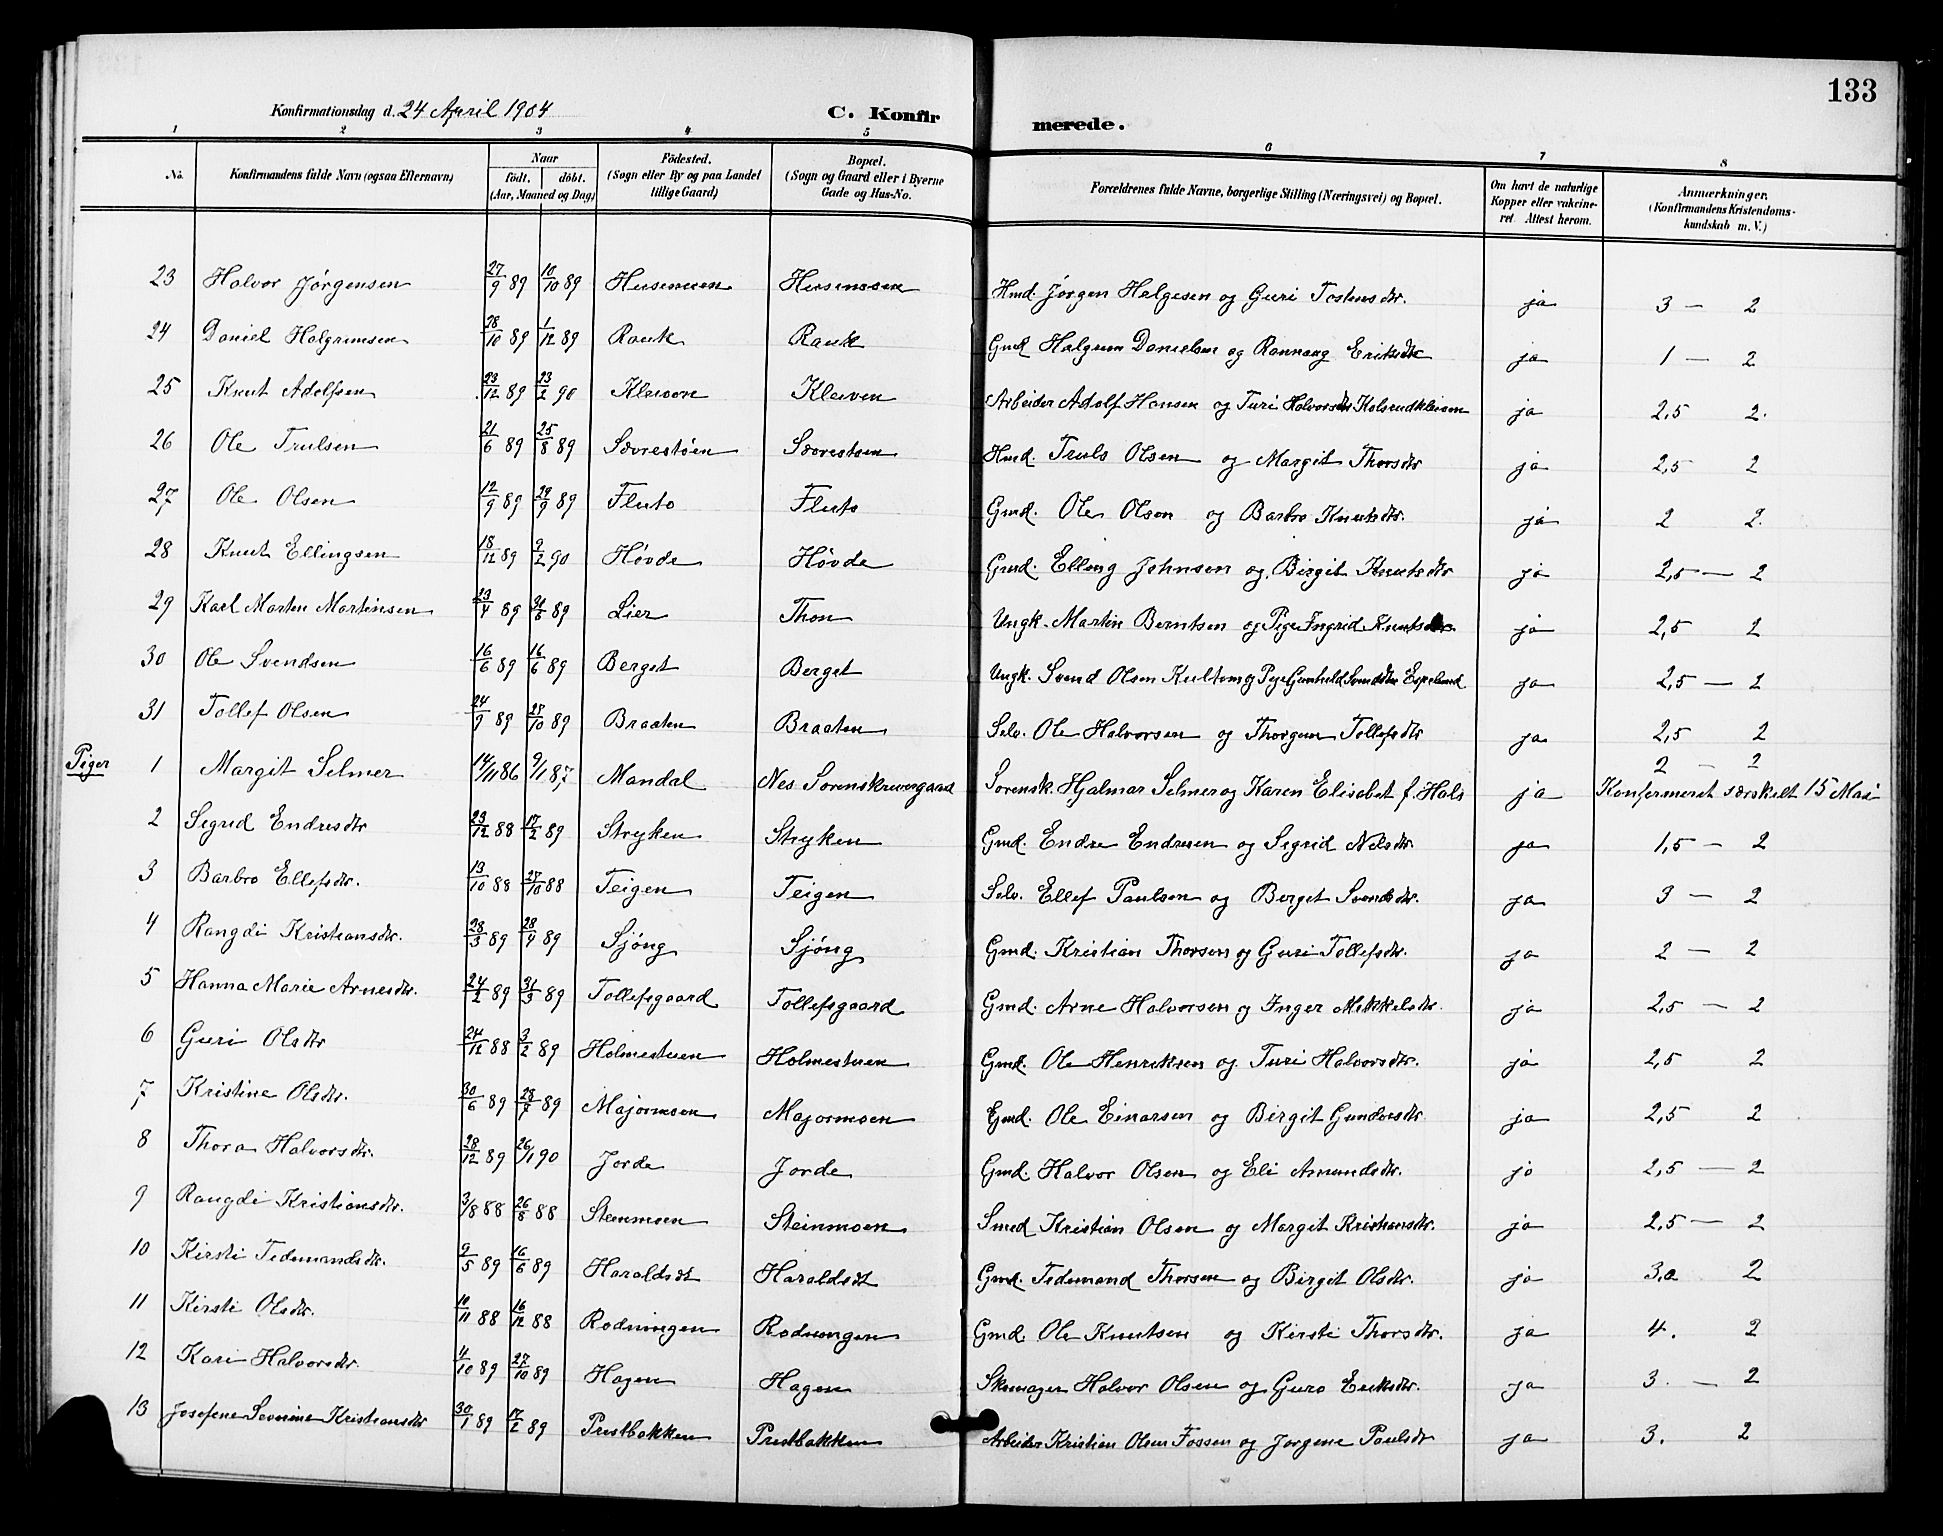 133
Konfirmationsdag d. 24 April 1904 C. Konfirmerede.
1 2 3 4 5 6 7 8
No. Konfirmandens fulde Navn (ogsaa Efternavn) Naar født. døbt. (Aar, Maaned og Dag) Födested. (Sogn eller By og paa Landet tillige Gaard) Bopæl. (Sogn og Gaard eller i Byerne Gade og Hus-No. Forældrenes fulde Navne, borgerlige Stilling (Næringsvei) og Bopæl. Om havt de naturlige Kopper eller vakcineret. Attest herom. Anmærkninger. (Konfirmandens Kristendomskundskab m. V.)
23 Halvor Jørgensen 27/9 89 10/10 89 Husemoen Husemoen Hmd. Jørgen Helgesen og Guri Tostensdtr. ja 3 – 2
24 Daniel Halgrimsen 28/10 89 1/12 89 Rauk Rauk Gmd Halgrim Danielsen og Rannaug Eriksdtr ja 1 – 2
25 Knut Adolfsen 23/12 89 23/2 90 Kleiven Kleiven Arbeider Adolf Hansen og Turi Halvorsdtr Kolsrudkleiven ja 2,5 2.
26 Ole Trulsen 21/6 89 25/8 89 Sævrestøen Sævrestøen Hmd. Truls Olsen og Margit Thorsdtr ja 2,5 2
27 Ole Olsen 12/9 89 29/9 89 Fluto Fluto Gmd. Ole Olsen og Barbro Knutsdtr. ja 2 2.
28 Knut Ellingsen 18/12 89 9/2 90 Høvde Høvde Gmd. Elling Johnsen og Birgit Knutsdtr ja 2,5 – 2
29 Karl Marten Martinsen 23/4 89 /6 89 Lier Thon Ungk. Martin Berntsen og Pige Ingrid Knutsdtr. ja 2,5 2
30 Ole Svendsen 16/6 89 16/6 89 Berget Berget Ungk. Svend Olsen Pige Gunhild Svendsdtr Espelund ja 2,5 – 2
31 Tollef Olsen 24/9 89 27/10 89 Braaten Braaten Selv. Ole Halvorsen og Thorgun Tollefsdtr ja 2,5 2
Piger 1 Margit Selmer 14/11 86 9/1 87 Mandal Nes Sorenskrivergaard Sorensk. Hjalmar Selmer og Karen Elisabet f. Hals ja 2 – 2 Konfermeret særskelt 15 Mai
2 Sigrid Endresdtr 23/12 88 17/2 89 Stryken Stryken Gmd. Endre Endresen og Sigrid Nelsdtr. ja 1,5 – 2
3 Barbro Ellefsdtr. 13/10 88 27/10 88 Teigen Teigen Selv. Ellef Paulsen og Berget Svendsdtr. ja 3 – 2
4 Rangdi Kristiansdtr. 28/3 89 28/4 89 Sjöng Sjöng Gmd. Kristian Thorsen og Guri Tollefsdtr. ja 2 – 2
5 Hanna Marie Arnesdtr. 24/2 89 31/3 89 Tollefsgaard Tollefsgaard Gmd. Arne Halvorsen og Inger Mikkelsdtr. ja 2,5 – 2
6 Guri Olsdtr 24/12 88 3/2 89 Holmestuen Holmestuen Gmd. Ole Henriksen og Turi Halvorsdtr. ja 2,5 2
7 Kristine Olsdtr. 30/6 89 28/7 89 Majormoen Majormoen Gmd. Ole Einarsen og Birgit Gundersdtr ja 2,5 2
8 Thora Halvorsdtr. 28/12 89 26/1 90 Jorde Jorde Gmd. Halvor Olsen og Eli Amundsdtr. ja 2,5 – 2
9 Rangdi Kristiansdtr. 3/8 88 26/8 88 Steinmoen Steinmoen Smed Kristian Olsen og Margit Kristiansdtr. ja 2,5 – 2
10 Kirsti Tidemandsdtr. 9/5 89 16/6 89 Haraldset Haraldset Gmd. Tidemand Thorsen og Birgit Olsdtr. ja 3,0 2
11 Kirsti Olsdtr. 10/11 88 16/12 88 Rodningen Rodningen Gmd. Ole Knutsen og Kirsti Thorsdtr. ja 4. 2
12 Kari Halvorsdtr. 4/10 89 27/10 89 Hagen Hagen Skomager Halvor Olsen og Guro Eriksdtr. ja 3. – 2
13 Josefine Severine Kristiansdtr 30/1 89 17/2 89 Prestbakken Prestbakken Arbeider Kristian Olsen Fossen og Jorgine Paulsdtr ja 3. 2